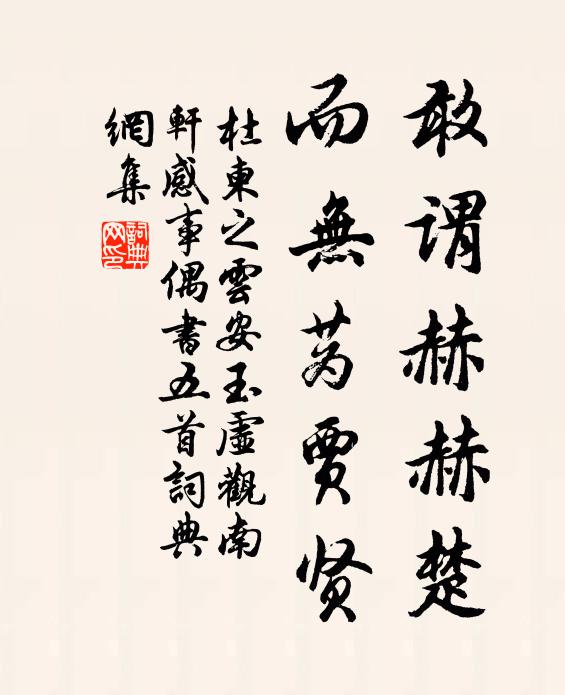 敢謂赫赫楚
而無蒍賈贤
杜東之雲安玉虛觀南
軒感事偶書五首詞典
網集
詞典
网印